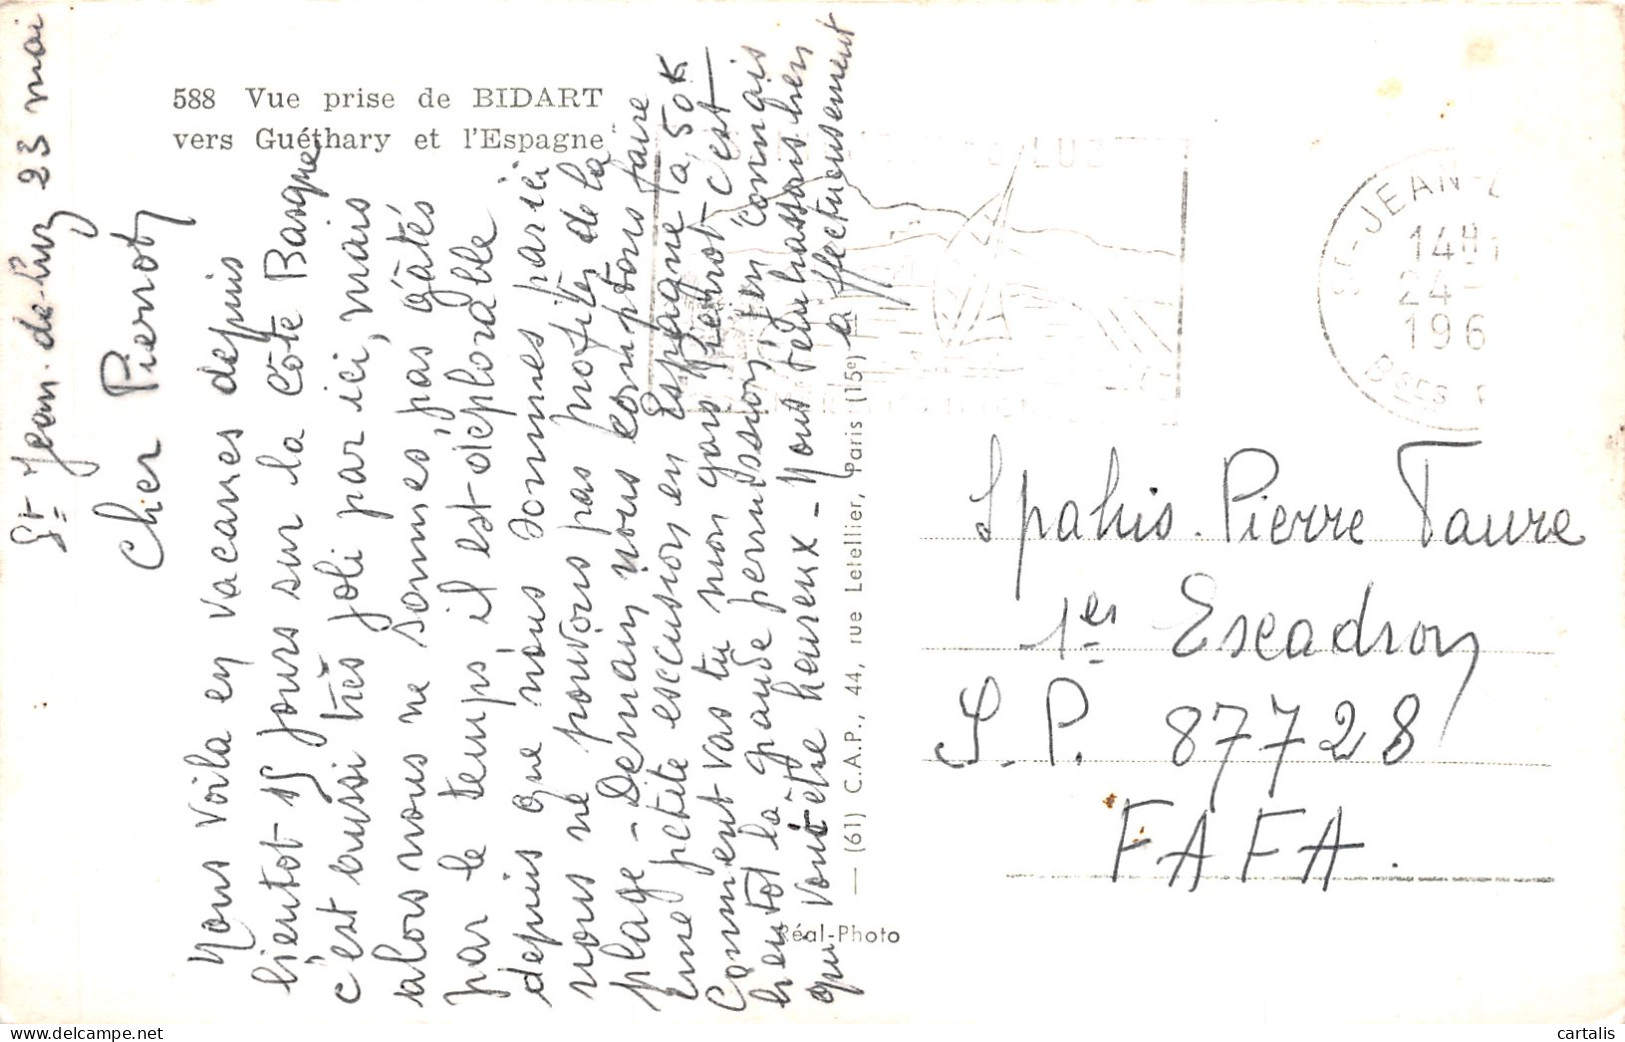 588 Vue prise de BIDART
vers Guéthary et l'Espagne
St Jean-de-Luz 23 mai
Cher Pierrot
Nous voila en vacances depuis
bientot 15 jours sur la Côte Basque
c'est aussi très joli par ici, mais
alors nous ne sommes pas gâtés
par le temps, il est déplorable
depuis que nous sommes par ici
nous ne pouvons pas profiter de la
plage - Demain nous comptons faire
une petite escusion en Espagne à 50 K
Comment vas tu mon gars Pierrot c'est
bientot la grande permission, j'en connais
qui vont être heureux - Nous t'embrassons bien
affectueusement
— (61) C.A.P., 44, rue Letellier, Paris (15e)
Réal-Photo
LUZ
ST-JEAN-
14H
24-
196
Bses P
Spahis. Pierre Faure
1er Escadron
S.P. 87728
F A F A.
delcampe.net
cartalis